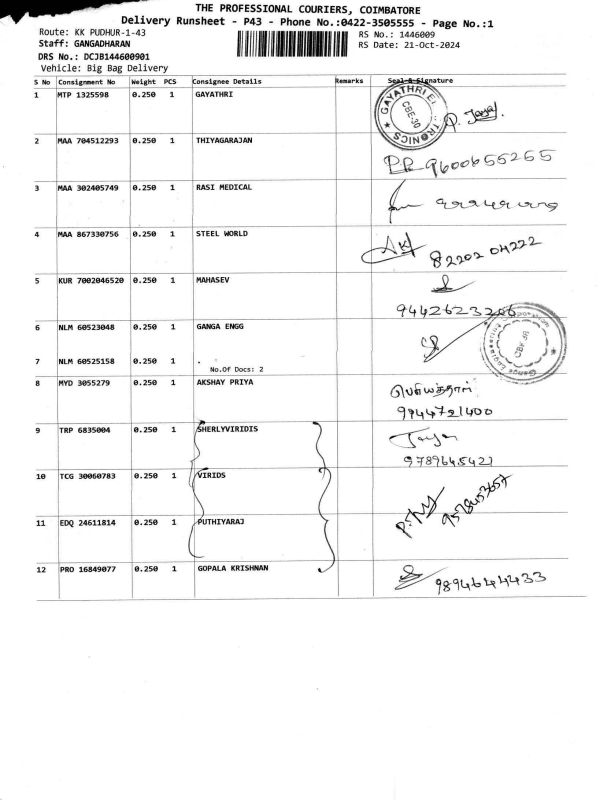 THE PROFESSIONAL COURIERS, COIMBATORE
Delivery Runsheet - P43 - Phone No.:0422-3505555 - Page No.:1
Route: KK PUDHUR-1-43 RS No.: 1446009
Staff: GANGADHARAN RS Date: 21-Oct-2024
DRS No.: DCJB144600901
Vehicle: Big Bag Delivery
S No Consignment No Weight PCS Consignee Details Remarks Seal & Signature
1 MTP 1325598 0.250 1 GAYATHRI
GAYATHRI CBE-30
2 MAA 704512293 0.250 1 THIYAGARAJAN
9600655255
3 MAA 302405749 0.250 1 RASI MEDICAL
4 MAA 867330756 0.250 1 STEEL WORLD
82202 04222
5 KUR 7002046520 0.250 1 MAHASEV
9442623206
6 NLM 60523048 0.250 1 GANGA ENGG
7 NLM 60525158 0.250 1 .
No.Of Docs: 2
8 MYD 3055279 0.250 1 AKSHAY PRIYA
9944721400
9 TRP 6835004 0.250 1 SHERLYVIRIDIS
9789645421
10 TCG 30060783 0.250 1 VIRIDS
11 EDQ 24611814 0.250 1 PUTHIYARAJ
12 PRO 16849077 0.250 1 GOPALA KRISHNAN
9894644433